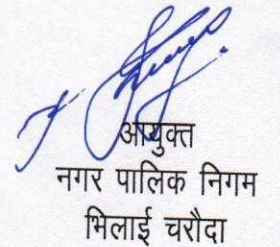 आयुक्त
नगर पालिक निगम
भिलाई चरौदा